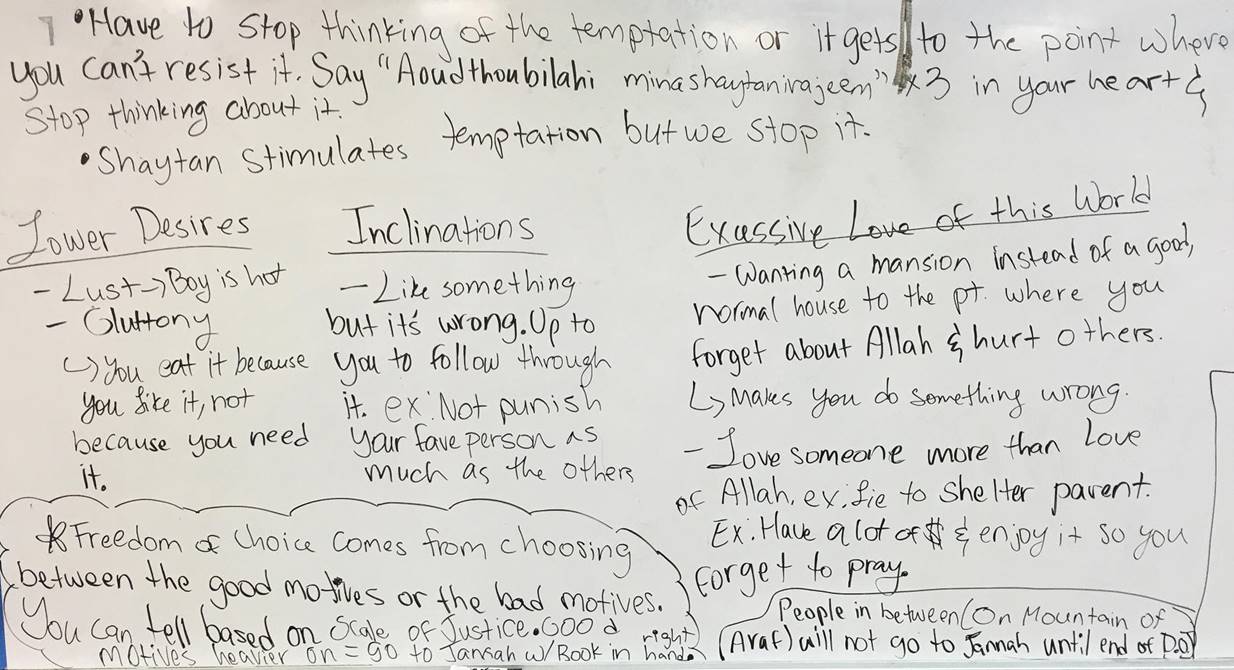 • Have to stop thinking of the temptation or it gets to the point where
you can't resist it. Say "Aoudthoubilahi minashaytanirajeem" x3 in your heart &
stop thinking about it.
• Shaytan stimulates temptation but we stop it.
Lower Desires
- Lust → Boy is hot
- Gluttony
↳ you eat it because
you like it, not
because you need
it.
Inclinations
- Like something
but it's wrong. Up to
you to follow through
it. ex: Not punish
your fave person as
much as the others
Exessive Love of this World
- Wanting a mansion instead of a good,
normal house to the pt. where you
forget about Allah & hurt others.
↳ Makes you do something wrong.
- Love someone more than love
of Allah. ex. lie to shelter parent.
Ex: Have a lot of $ & enjoy it so you
forget to pray.
* Freedom of Choice comes from choosing
between the good motives or the bad motives.
You can tell based on Scale of Justice. Good
motives heavier on = go to Jannah w/ Book in right hand.
People in between (On Mountain of
Araf) will not go to Jannah until end of D.O.J